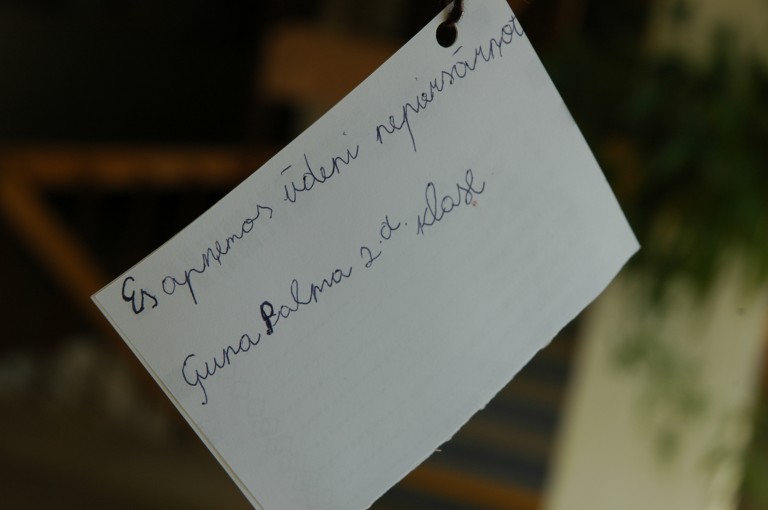 Es apņemos ūdeni nepiesārņot
Guna Balma 2.d. klase